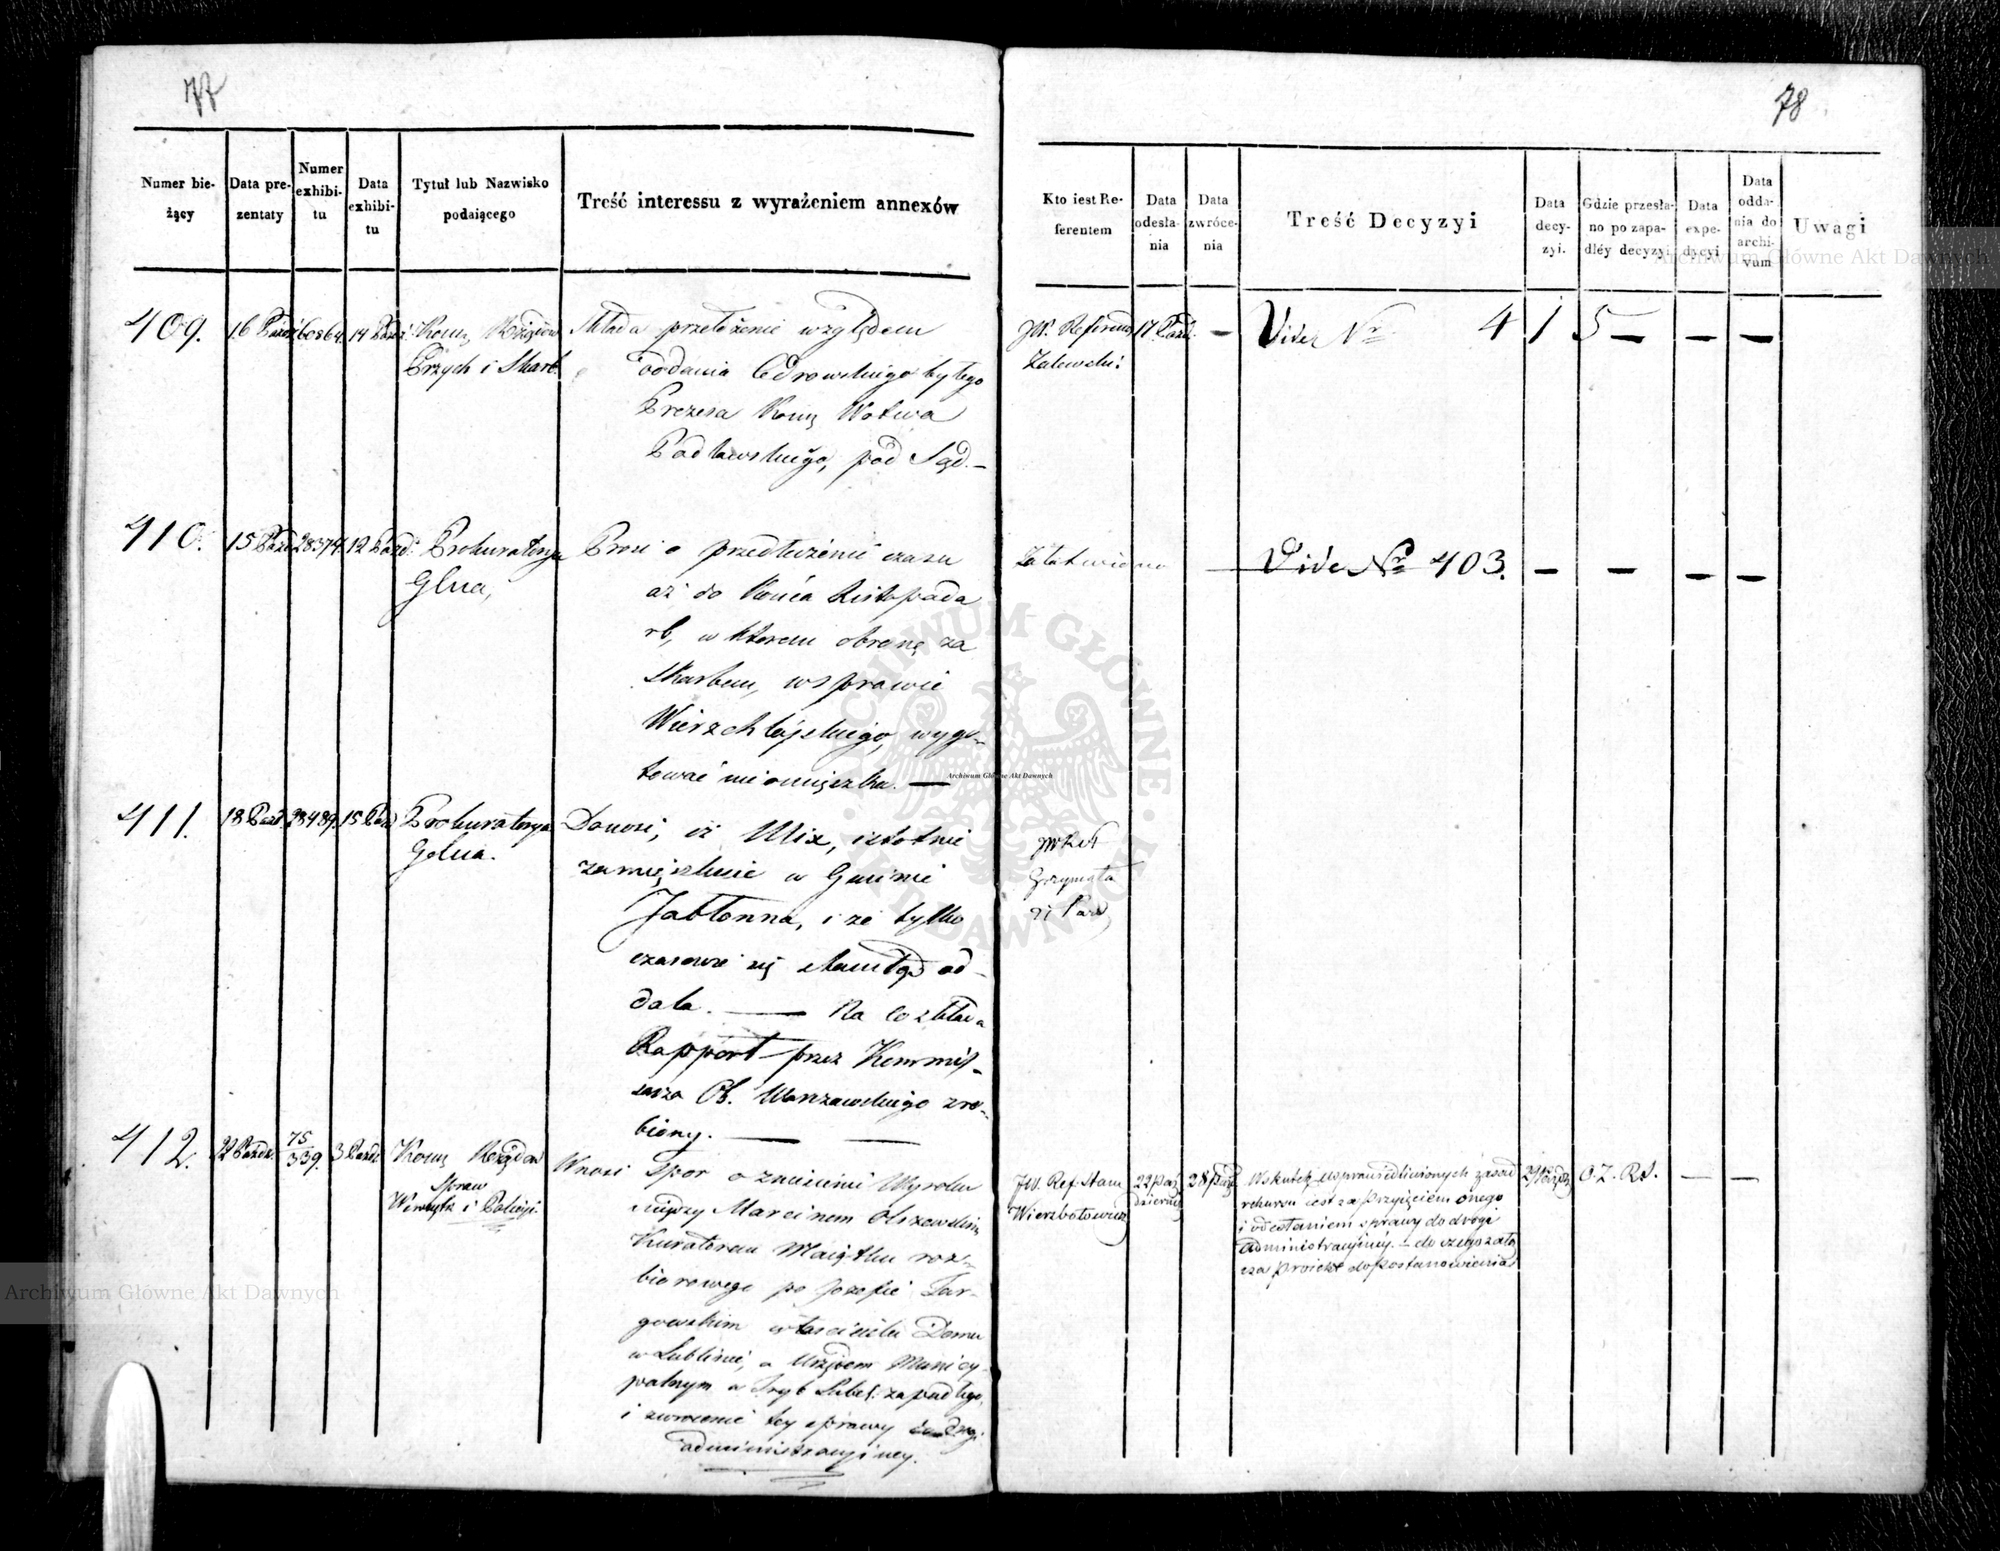 77
78
Numer bie-
żący
Data pre-
zentaty
Numer
exhibi-
tu
Data
exhibi-
tu
Tytuł lub Nazwisko
podaiącego
Treść interessu z wyrażeniem annexów
Kto iest Re-
ferentem
Data
odesła-
nia
Data
zwróce-
nia
Treść Decyzyi
Data
decy-
zyi.
Gdzie przesła-
no po zapa-
dłéy decyzyi
Data
expe-
dycyi
Data
odda-
nia do
archi-
vum
Uwagi
409.
16 Paźd
60864.
14 Paźd
Kom. Rządow
Przych i Skarb.
Składa przełożenie względem
oddania Cedrowskiego byłego
Prezesa Kom. Wotwa
Podlaskiego, pod Sąd. —
JW. Referend
Zalewski
17 Paźd.
—
Vide No 415 — — — —
410.
15 Paźd
28374.
12 Paźd.
Prokuratorya
Glna,
Prosi o przedłużenie czasu
aż do Końca Listopada
rb, w którem obronę za
Skarbem, w sprawie
Wierzchlejskiego, wygo-
tować nieomieszka. —
Załatwiono
Vide No 403. — — — —
411.
18 Paźd.
28489.
15 Paźd
Prokuratorya
Golna.
Donosi, iż Mix, istotnie
zamięszkuie w Gminie
Jabłonna, i że tylko
czasowie się stamtąd od-
dala. — Na co składa
Rapport przez Kommis-
sarza Ob. Warszawskiego zro-
biony. — —
JW Ref
Grzymała
21 Paźd
412.
22 Paźdz.
75
339.
3 Paźdz
Kom. Rządow
Spraw
Wewnętr i Policyi.
Wnosi Spór o zniesienie Wyroku
między Marcinem Olszewskim
Kuratorem Maiątku roz-
biorowego po Jozefie Tar-
gowskim właścicielu Domu
w Lublinie, a Urzędem Municy-
palnym w Tryb Lubel. zapadłego,
i zwrócenie tey sprawy do drogi
administracyiney.
JW. Ref Stanu
Wierzbołowicz
22 paź
dziernik
28 paź
Wskutek usprawiedliwionych zasad
rekursu iest za przyięciem onego
i odesłaniem sprawy do drogi
administracyiney. — do czego załą-
cza proiekt do postanowienia
29 Paźdz
O. Z. R. S.
— —
Archiwum Główne Akt Dawnych
Archiwum Główne Akt Dawnych
Archiwum Główne Akt Dawnych
ARCHIWUM GŁÓWNE AKT DAWNYCH